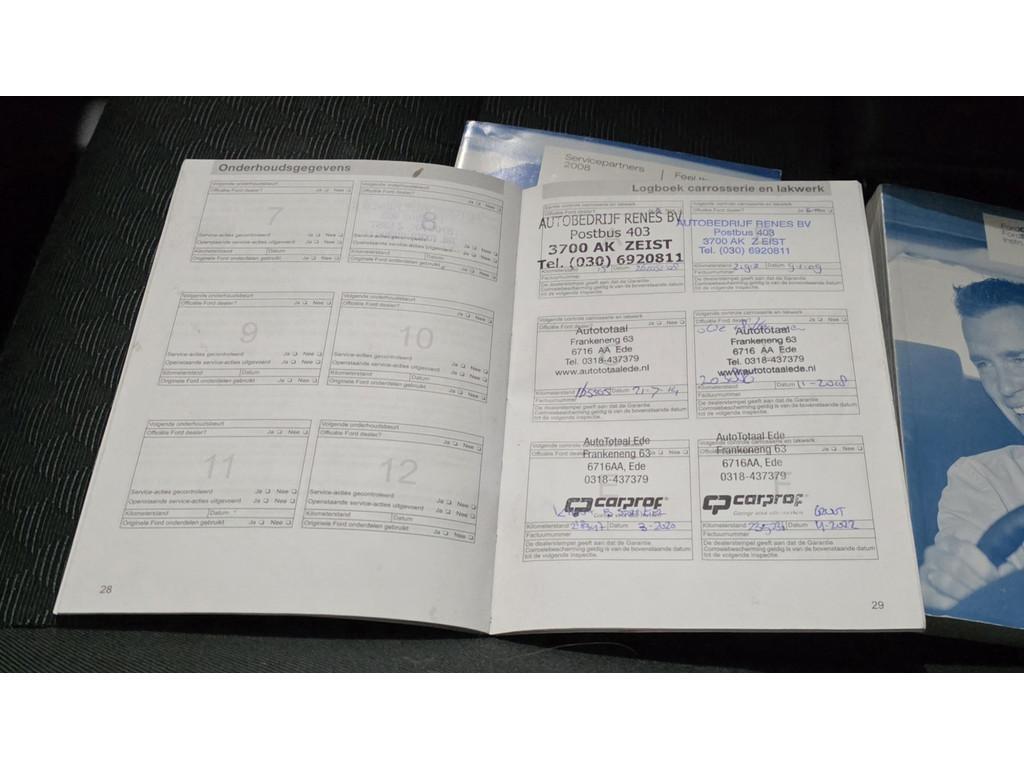 Servicepartners
2008
Onderhoudsgegevens
Volgende onderhoudsbeurt
Officiële Ford dealer? Ja Nee
7
Service-acties gecontroleerd Ja Nee
Openstaande service-acties uitgevoerd Ja Nee
Kilometerstand Datum
Originele Ford onderdelen gebruikt Ja Nee
Volgende onderhoudsbeurt
Officiële Ford dealer? Ja Nee
8
Service-acties gecontroleerd Ja Nee
Openstaande service-acties uitgevoerd Ja Nee
Kilometerstand Datum
Originele Ford onderdelen gebruikt Ja Nee
Volgende onderhoudsbeurt
Officiële Ford dealer? Ja Nee
9
Service-acties gecontroleerd Ja Nee
Openstaande service-acties uitgevoerd Ja Nee
Kilometerstand Datum
Originele Ford onderdelen gebruikt Ja Nee
Volgende onderhoudsbeurt
Officiële Ford dealer? Ja Nee
10
Service-acties gecontroleerd Ja Nee
Openstaande service-acties uitgevoerd Ja Nee
Kilometerstand Datum
Originele Ford onderdelen gebruikt Ja Nee
Volgende onderhoudsbeurt
Officiële Ford dealer? Ja Nee
11
Service-acties gecontroleerd Ja Nee
Openstaande service-acties uitgevoerd Ja Nee
Kilometerstand Datum
Originele Ford onderdelen gebruikt Ja Nee
Volgende onderhoudsbeurt
Officiële Ford dealer? Ja Nee
12
Service-acties gecontroleerd Ja Nee
Openstaande service-acties uitgevoerd Ja Nee
Kilometerstand Datum
Originele Ford onderdelen gebruikt Ja Nee
28
Logboek carrosserie en lakwerk
Eerste controle carrosserie en lakwerk
AUTOBEDRIJF RENES BV
Postbus 403
3700 AK ZEIST
Tel. (030) 6920811
Kilometerstand Datum
Factuurnummer
De dealerstempel geeft aan dat de Garantie
Corrosiebescherming geldig is van de bovenstaande datum
tot de volgende inspectie.
Volgende controle carrosserie en lakwerk
AUTOBEDRIJF RENES BV
Postbus 403
3700 AK ZEIST
Tel. (030) 6920811
Kilometerstand Datum
Factuurnummer
De dealerstempel geeft aan dat de Garantie
Corrosiebescherming geldig is van de bovenstaande datum
tot de volgende inspectie.
Volgende controle carrosserie en lakwerk
Officiële Ford dealer? Ja Nee
Autototaal
Frankeneng 63
6716 AA Ede
Tel. 0318-437379
www.autototaalede.nl
Kilometerstand Datum
Factuurnummer
De dealerstempel geeft aan dat de Garantie
Corrosiebescherming geldig is van de bovenstaande datum
tot de volgende inspectie.
Volgende controle carrosserie en lakwerk
Ja Nee
Autototaal
Frankeneng 63
6716 AA Ede
Tel. 0318-437379
www.autototaalede.nl
Kilometerstand Datum 11-2018
Factuurnummer
De dealerstempel geeft aan dat de Garantie
Corrosiebescherming geldig is van de bovenstaande datum
tot de volgende inspectie.
Volgende controle carrosserie en lakwerk
Officiële Ford dealer? Ja Nee
AutoTotaal Ede
Frankeneng 63
6716AA, Ede
0318-437379
carprof
Kilometerstand Datum 3-2020
Factuurnummer
De dealerstempel geeft aan dat de Garantie
Corrosiebescherming geldig is van de bovenstaande datum
tot de volgende inspectie.
Volgende controle carrosserie en lakwerk
Officiële Ford dealer? Ja Nee
AutoTotaal Ede
Frankeneng 63
6716AA, Ede
0318-437379
carprof
Kilometerstand Datum
Factuurnummer
De dealerstempel geeft aan dat de Garantie
Corrosiebescherming geldig is van de bovenstaande datum
tot de volgende inspectie.
29